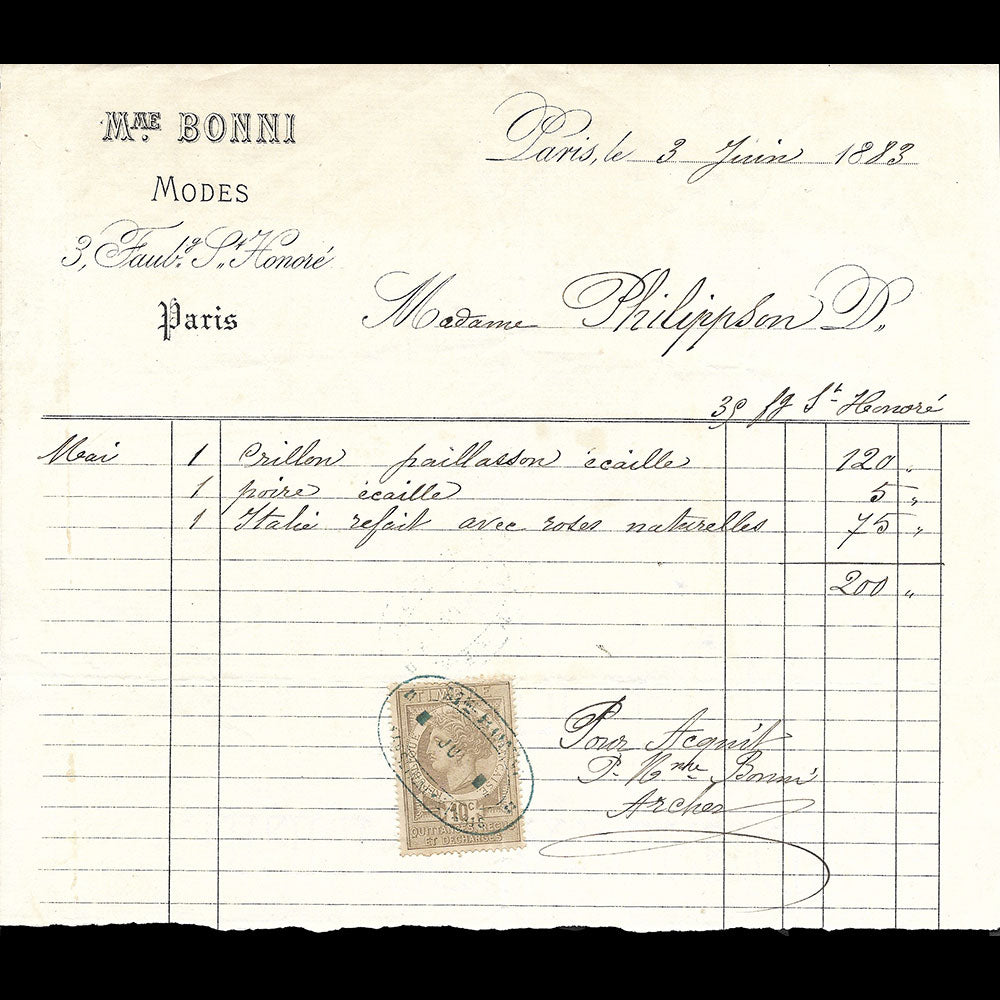 Mme. BONNI
MODES
3, Faubg. St. Honoré
Paris
Paris, le 3 Juin 1883
Madame Philippson D.
39 fg St Honoré
Mai 1 Crillon paillasson écaille 120 "
1 poire écaille 5 "
1 Italie refait avec roses naturelles 75 "
200 "
Pour Acquit
P. Bonni
Archer
10 c
QUITTANCES
ET DECHARGES